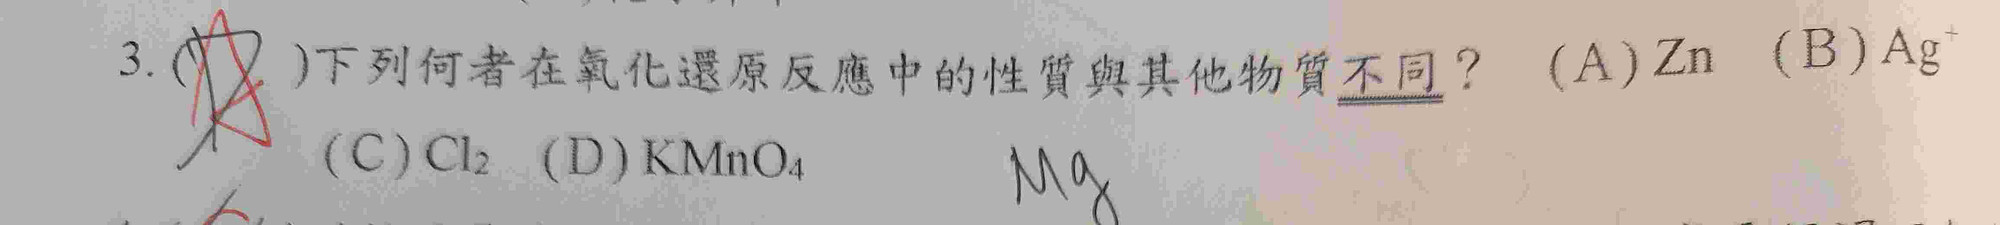 3. (A)下列何者在氧化還原反應中的性質與其他物質不同? (A)Zn (B)Ag⁺
(C)Cl₂ (D)KMnO₄
Mg